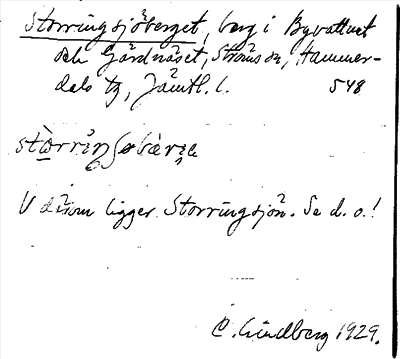 Storringsjöberget, berg i Byvattnet
och Gårdnäset, Ströms sn, Hammer-
dals tg, Jämtl. l. 548
V därom ligger Storringsjön. Se d. o.!
C. Lindberg 1929.